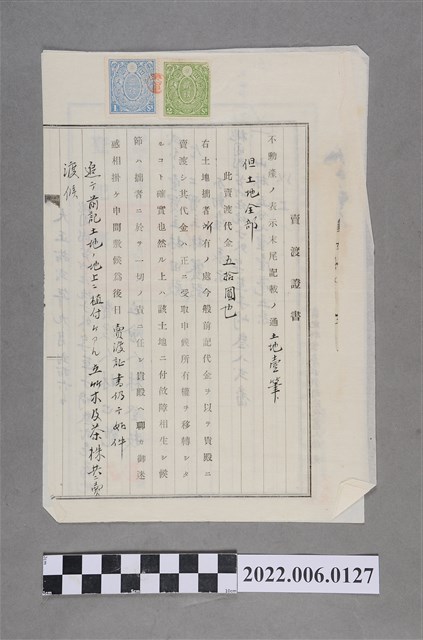 賣渡證書
不動産ノ表示末尾記載ノ通土地壹筆
但土地全部
此賣渡代金五拾圓也
右土地拙者所有ノ處今般前記代金ヲ以テ貴殿ニ
賣渡シ其代金ハ正ニ受取申候所有權ヲ移轉シタ
ルコト確實也然ル上ハ該土地ニ付故障相生シ候
節ハ拙者ニ於テ一切ノ責ニ任シ貴殿ヘ聊カ御迷
惑相掛ケ申間敷候爲後日賣渡証書仍テ如件
追テ前記土地ノ地上ニ植付アル立竹木及茶株共賣
渡候
2022.006.0127